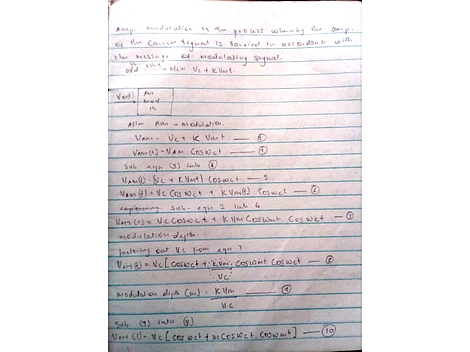 Amp. modulation is the process whereby the amp.
of the carrier signal is varied in accordance with
the message or modulating signal.
old new Vc + KVmt.
Vm(t) Am mod K
After Am - modulation.
Vam = Vc + K Vmt
Vam(t) = VAM Coswct
Sub eqn (3) into (4)
Vam(t) = [Vc + KVmt] Coswct — 5
Vam(t) = Vc Coswct + KVm(t) Coswct — 6
sub. eqn 2 into 6
Vam(t) = Vc Coswct + KVm Coswmt Coswct — 7
modulation depth.
factoring out Vc from eqn 7
Vam(t) = Vc [Coswct + KVm Coswmt Coswct — 8
Vc
modulation depth (m) = KVm — 9
Vc
Sub (9) into (8)
Vam (t) = Vc [Coswct + m Coswct Coswmt] — (10)